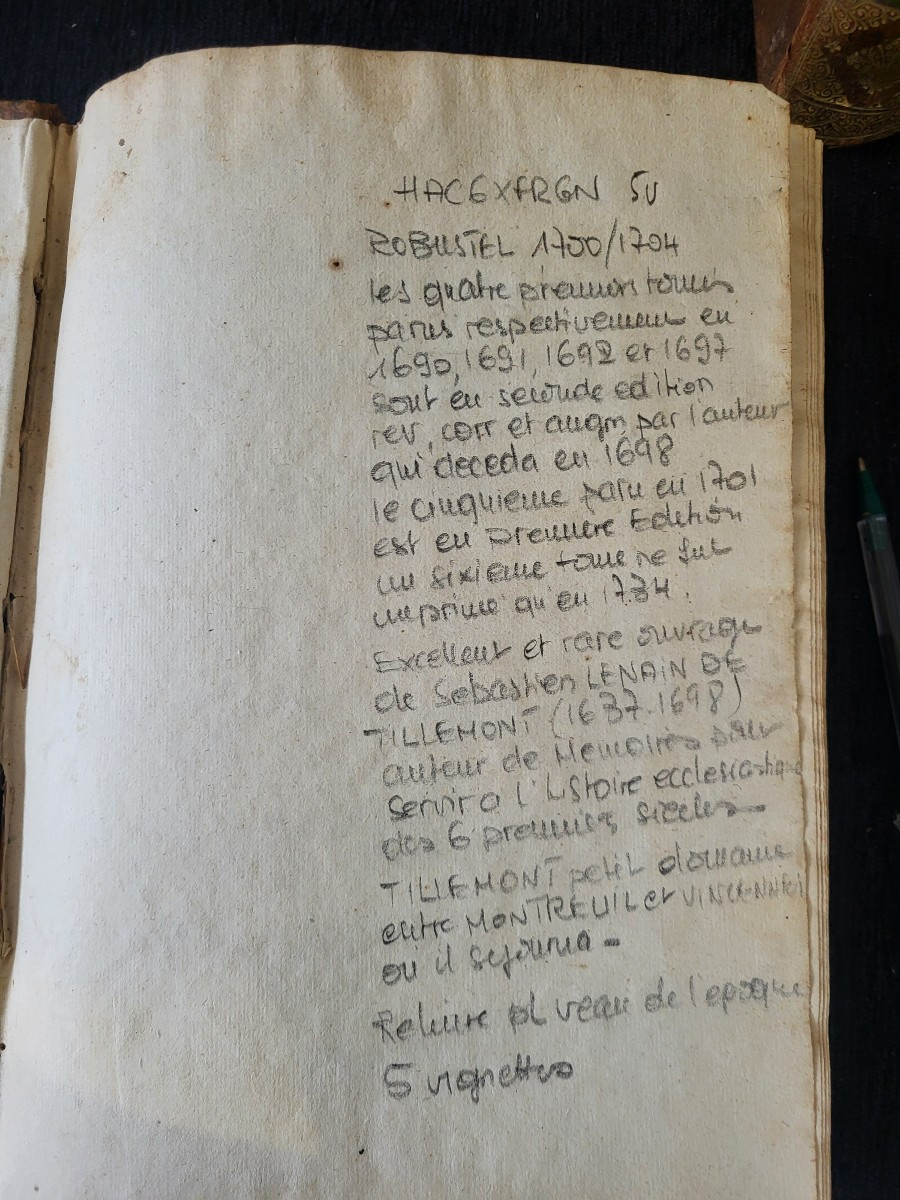 HACGXFRGN 5V
ROBUSTEL 1700/1704
les quatre premiers tomes
parus respectivement en
1690, 1691, 1692 et 1697
sont en seconde edition
rev, corr et augm par l'auteur
qui deceda en 1698
le cinquieme paru en 1701
est en premiere Edition
un sixieme tome ne fut
imprimé qu'en 1734.
Excellent et rare ouvrage
de Sebastien LENAIN DE
TILLEMONT (1637-1698)
auteur de Memoires pour
servir a l'histoire ecclesiastique
des 6 premiers siecles
TILLEMONT petit domaine
entre MONTREUIL et VINCENNES
ou il sejourna -
Reliure pl veau de l'epoque
5 vignettes